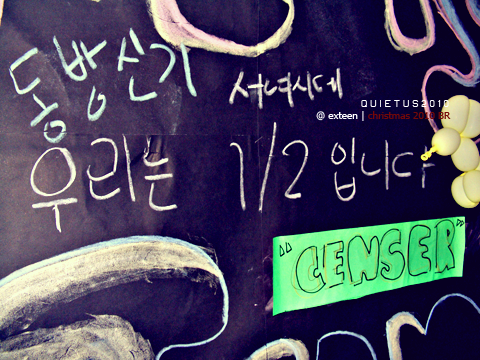 동방신기
서녀시대
QUIETUS2010
@ exteen | christmas 2010 BR
우리는 1/2 입니다
"CENSER"